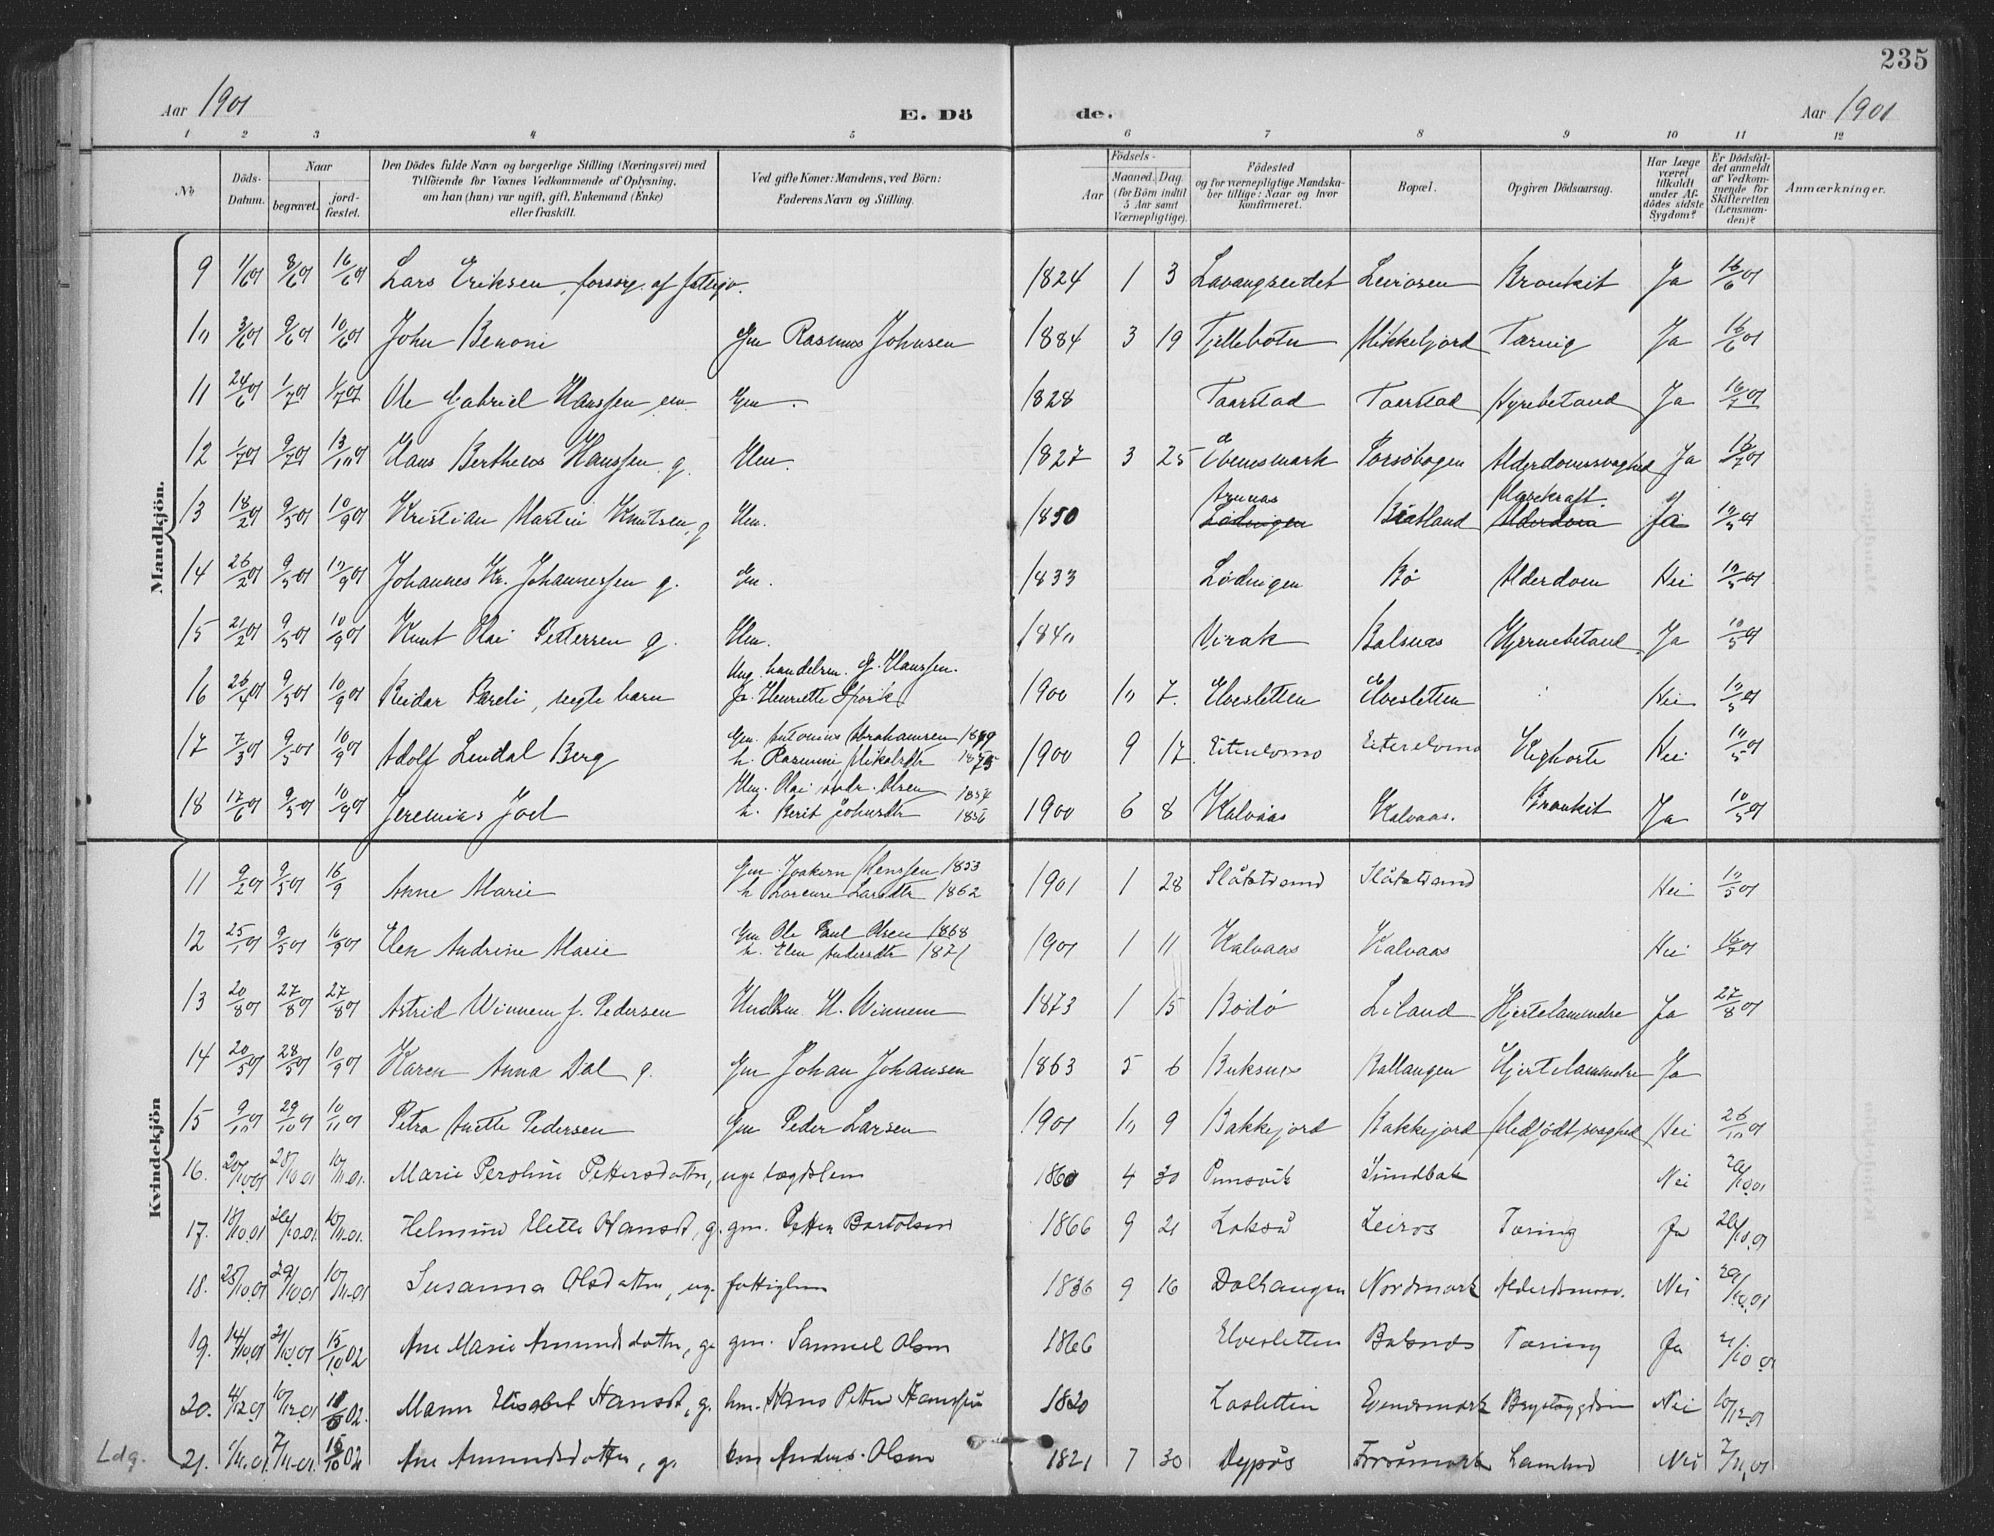 235
Aar 1901
E. Dö
de.
Aar 1901
1 2 3 4 5 6 7 8 9 10 11 12
No
Döds-Datum.
Naar
begravet.
jord-fæstet.
Den Dödes fulde Navn og borgerlige Stilling (Næringsvei) med
Tilföiende for Voxnes Vedkommende af Oplysning,
om han (hun) var ugift, gift, Enkemand (Enke)
eller fraskilt.
Ved gifte Koner: Mandens, ved Börn:
Faderens Navn og Stilling.
Födsels-
Aar
Maaned. Dag
(for Börn indtil
5 Aar samt
Værnepligtige).
Födested
og for værnepligtige Mandska-
ber tillige: Naar og hvor
konfirmeret.
Bopæl.
Opgiven Dödsaarsag.
Har Læge
været
tilkaldt
under Af-
dödes sidste
Sygdom?
Er Dödsfal-
det anmeldt
af Vedkom-
mende for
Skifteretten
(Lensman-
den)?
Anmærkninger.
Mandkjön.
9 1/6 01 8/6 01 16/6 01 Lars Eriksen, forsørg. af 1824 1 3 Lavangseidet Leirosen Bronkit Ja 16/6 01
10 3/6 01 9/6 01 10/6 01 John Benoni Gm Rasmus Johnsen 1884 3 19 Tjellebotn Mikkelfjord Tæring Ja 16/6 01
11 24/6 01 1/7 01 1/7 01 Ole Gabriel Hanssen em Gm. 1828 Taarstad Taarstad Ja 16/7 01
12 1/7 01 9/7 01 13/10 01 Hans Bertheus Hanssen g. Hm. 1827 3 25 Evenesmark Alderdomssvaghed Ja
13 18/2 01 9/5 01 10/9 01 Kristian Martin Knutsen, g Hm. 1850 Lødingen Mavekraft. Alderdom Ja 10/5 01
14 26/2 01 9/5 01 10/9 01 Johannes Kr. Johannessen g. Gm. 1833 Lødingen Bø Alderdom Nei 10/5 01
15 21/2 01 9/5 01 10/9 01 Knut Olai Pettersen g. Hm. 1840 Virak Balsnes Hjernebetænd Ja 10/5 01
Ung. handelsm. G. Hanssen.
16 26/4 01 9/5 01 10/9 01 Reidar Pareli, uegte barn 1900 10 7. Elvesletten Elvesletten Nei 10/5 01
Gm. Antonius Abrahamsen 1849
17 7/3 01 9/5 01 10/9 01 Adolf Lendal Berg h. Rasmine Mikalsdtr 1875 1900 9 17. Kighoste Nei 10/5 01
Hm. Olai Andr. Olsen 1854
18 17/6 01 9/5 01 10/9 01 Jeremias Joel h. Berit Johnsdtr 1856 1900 6 8 Kalvaas Kalvaas. Bronkit Ja 10/5 01
Kvindekjön
Gm. Joakim Jenssen 1853
11 9/2 01 9/5 01 16/9 Anne Marie h Larsdtr 1862 1901 1 28 Slåtstrand Slåtstrand Nei 10/5 01
Gm Ole Paul Olsen 1868
12 25/1 01 9/5 01 16/9 01 Elen Andrine Marie h. Elen Andersdtr 1871 1901 1 11 Kalvaas Kalvaas Nei
13 20/8 01 27/8 01 27/8 01 Astrid Winnem f. Pedersen H. Winnem 1873 1 15 Bodø Liland Hjertelammelse Ja 27/8 01
14 20/5 01 28/5 01 10/9 01 Karen Anna Dal g. Gm Johan Johansen 1863 5 6 Buksnes Ballangen Hjertelammelse Ja
15 9/10 01 29/10 01 10/11 01 Petra Anette Pedersen Gm Peder Larsen 1901 10 9 Bakkejord Bakkejord Medfødt svaghed Nei 26/10 01
16. 20/10.01 10/11.01. Marie Peroline Pettersdatter, ug. lægdslem 1860 4 30 Punsvik Sundbak Nei
17. 18/10.01 10/11-01. Helmine Elette Hansd, g. gm. Petter Bartolsen 1866 9 21 Leiros Tæring Ja
18. 25/10.01 29/10.01 10/11-01 Susanna Olsdatter, ug. fattiglem 1836 9 16 Dalhaugen Nordmark Alderdomssv. Nei 29/10.01
19. 14/10.01 21/10.01 15/10 02 Ane Marie Amundsdatter, g. gm. Samuel Olsen 1866 Elvesletten Balsnes Tæring Ja 21/10 01
20. 4/12.01 10/12.01 02. Maren Elisabet Hansd, g. hm. Hans Petter Hanssen 1820 Evenesmark Brystsygdom Nei 10/12.01
Ldg. 21. 1/11.01. 7/11.01. 15/10 02 Ane Amundsdatter, g. hm Anders Olsen 1821 7 30 Dypås Forsåmark Lamhed Nei 7/11.01